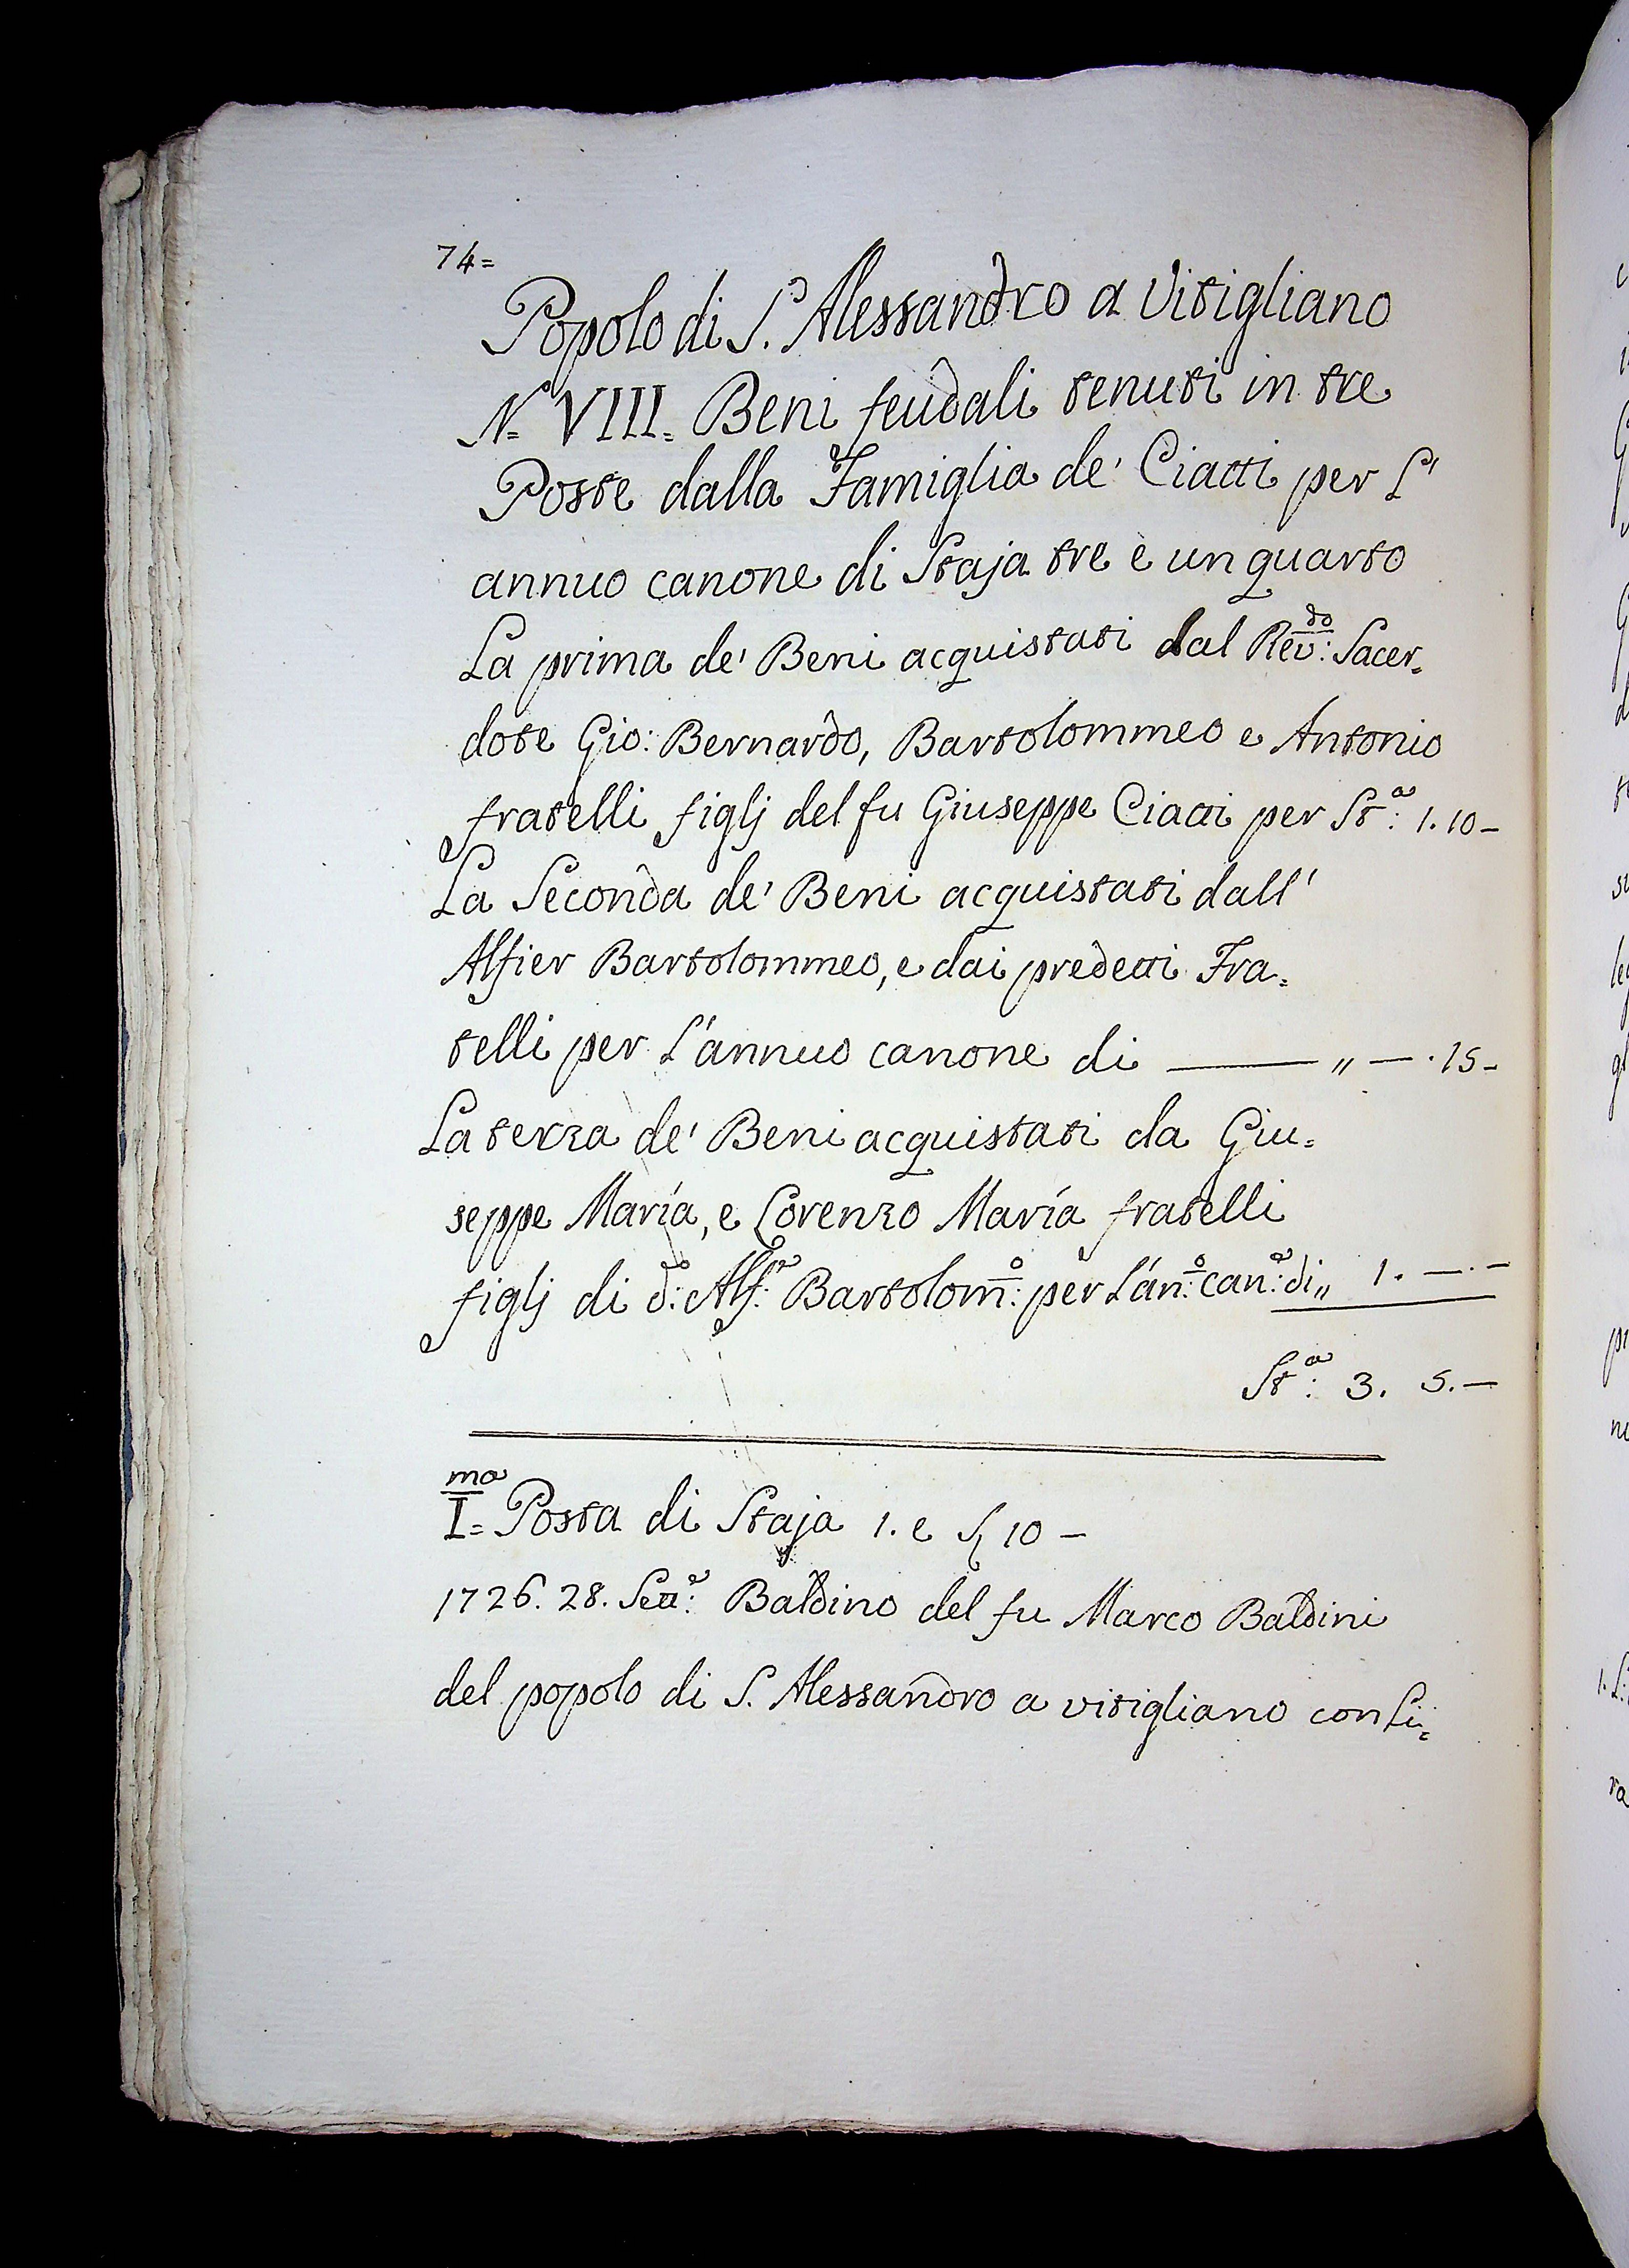 74=
Popolo di S. Alessandro a Vitigliano
N.= VIII.= Beni feudali tenuti in tre
Poste dalla Famiglia de' Ciatti per L'
annuo canone di Staja tre e un quarto
La prima de' Beni acquistati dal Rev:do Sacer=
dote Gio: Bernardo, Bartolommeo e Antonio
fratelli figlj del fu Giuseppe Ciatti per St:a 1. 10 –
La Seconda de' Beni acquistati dall'
Alfier Bartolommeo, e dai predetti Fra=
telli per L'annuo canone di ——— „ — . 15 –
La terza de' Beni acquistati da Giu=
seppe María, e Lorenzo María fratelli
figlj di d:o Alf:e Bartolom:o per L'an:o can:e di „ 1. — . –
St:a 3. 5. –
I=ma Posta di Staja 1. e S 10 –
1726. 28. Sett:e Baldino del fu Marco Baldini
del popolo di S. Alessandro a vitigliano con Li=